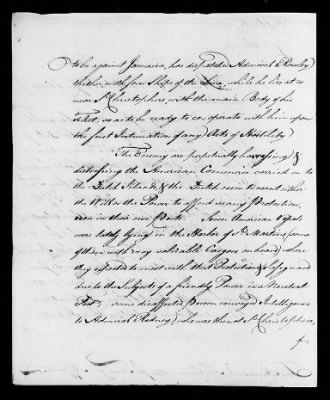 to be against Jamaica, has dispatched Admiral Rowley
thither, with four Ships of the Line, while he lies at or
near St Christophers, with the main Body of his
Fleet, so as to be ready to cooperate with him upon
the first Intimation of any Acts of Hostility.
The Enemy are perpetually harrassing &
distressing the American Commerce carried on to
the Dutch Islands, & the Dutch seem to want either
the Will or the Power to afford us any Protection,
even in their own Ports. Seven American Vessels
were lately lying in the Harbor of St Martins, some
of them with very valuable Cargoes on board, where
they expected to meet with that Protection & Safeguard
due to the Subjects of a friendly Power in a Neutral
Port; some disaffected Person conveyed Intelligence
to Admiral Rodney, who was then at St Christophers,